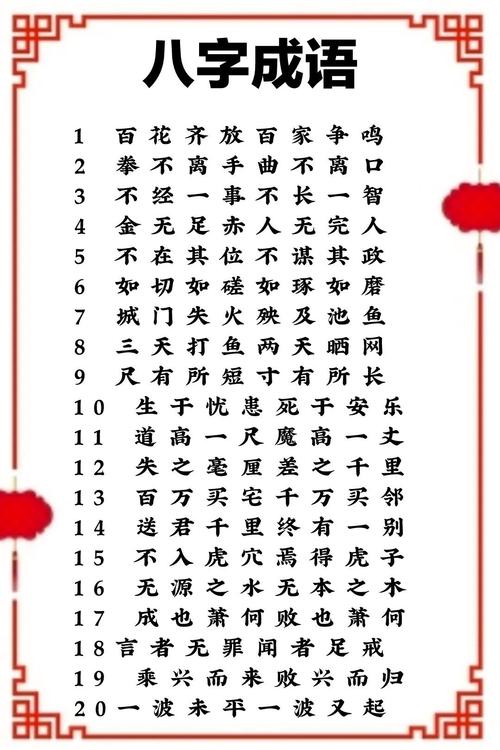 八字成语
1 百花齐放百家争鸣
2 拳不离手曲不离口
3 不经一事不长一智
4 金无足赤人无完人
5 不在其位不谋其政
6 如切如磋如琢如磨
7 城门失火殃及池鱼
8 三天打鱼两天晒网
9 尺有所短寸有所长
10 生于忧患死于安乐
11 道高一尺魔高一丈
12 失之毫厘差之千里
13 百万买宅千万买邻
14 送君千里终有一别
15 不入虎穴焉得虎子
16 无源之水无本之木
17 成也萧何败也萧何
18 言者无罪闻者足戒
19 乘兴而来败兴而归
20 一波未平一波又起